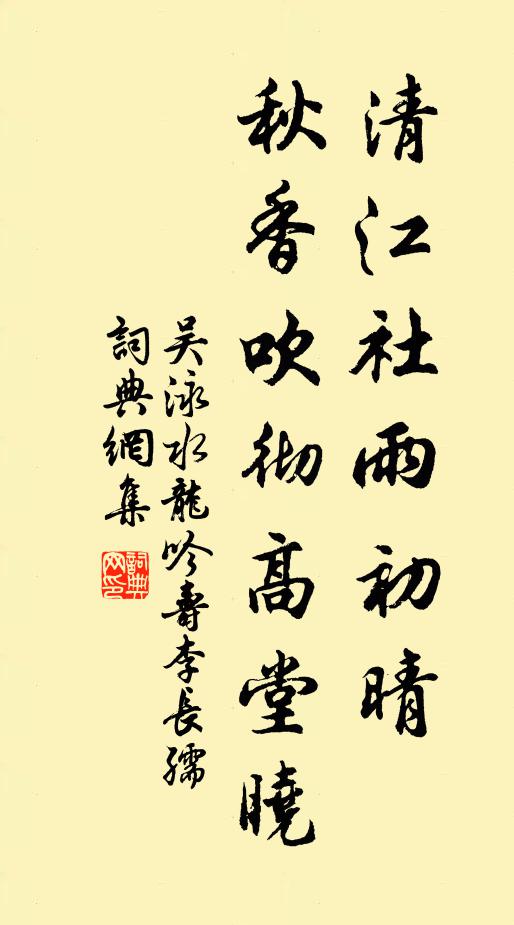 清江社雨初晴
秋香吹彻高堂曉
吴泳水龍吟壽李長孺
詞典網集
詞典网印